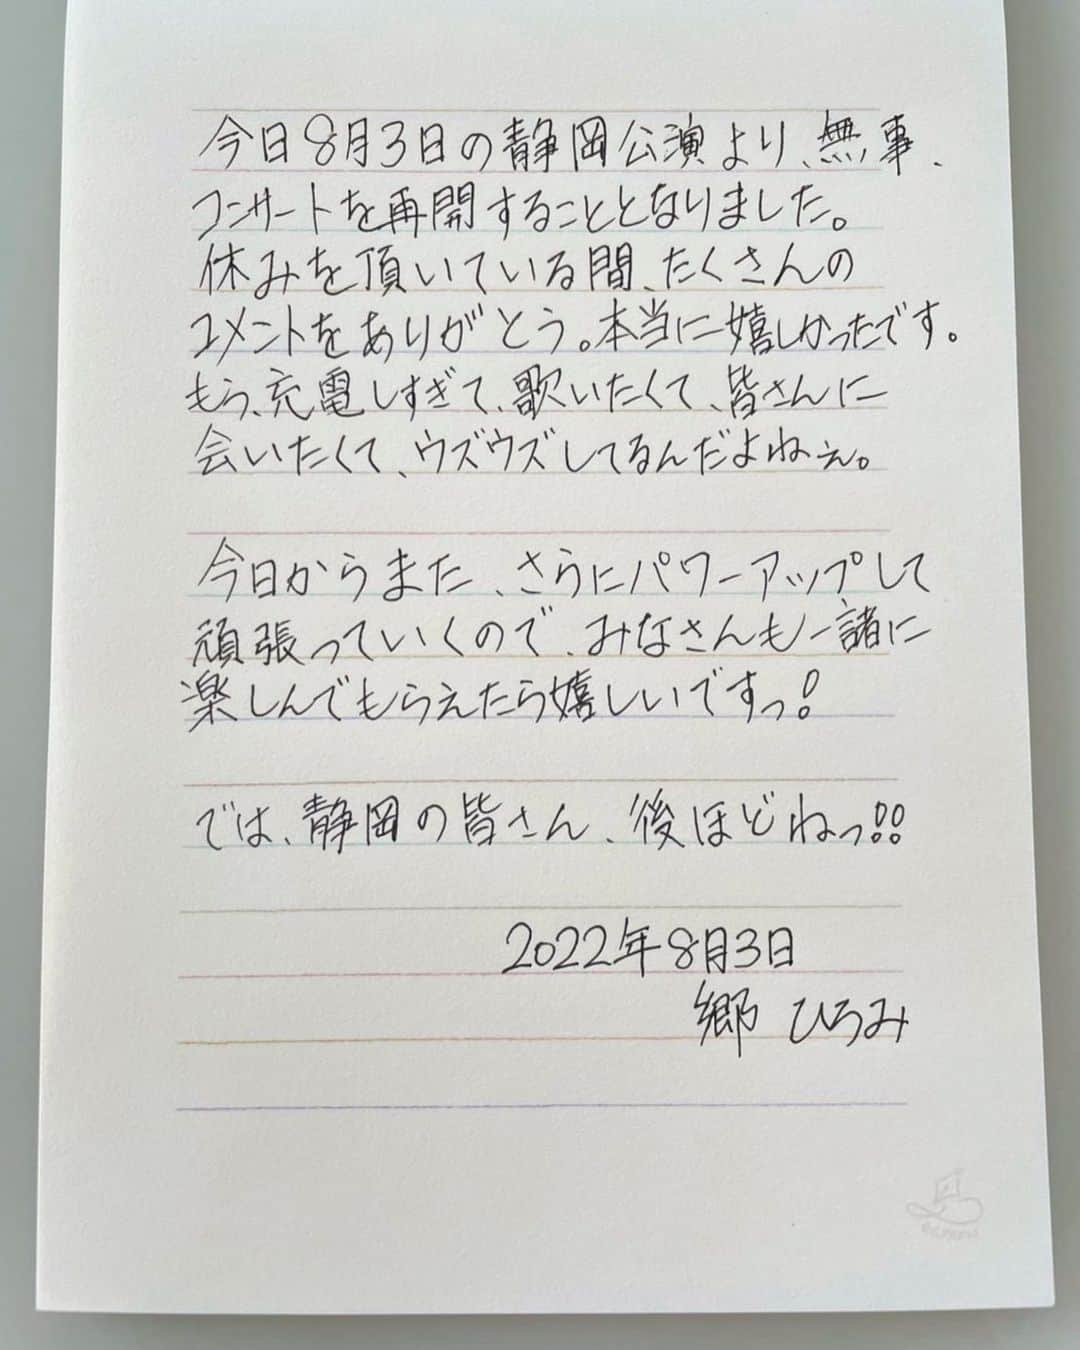 今日8月3日の静岡公演より、無事、
コンサートを再開することとなりました。
休みを頂いている間、たくさんの
コメントをありがとう。本当に嬉しかったです。
もう、充電しすぎて、歌いたくて、皆さんに
会いたくて、ウズウズしてるんだよねぇ。
今日からまた、さらにパワーアップして
頑張っていくので、みなさんも一諸に
楽しんでもらえたら嬉しいですっ!
では、静岡の皆さん、後ほどねっ!!
2022年8月3日
郷 ひろみ